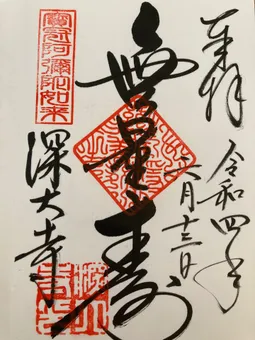 奉拝
令和四年
六月十三日
無量寿
寳冠阿彌陀如来
深大寺